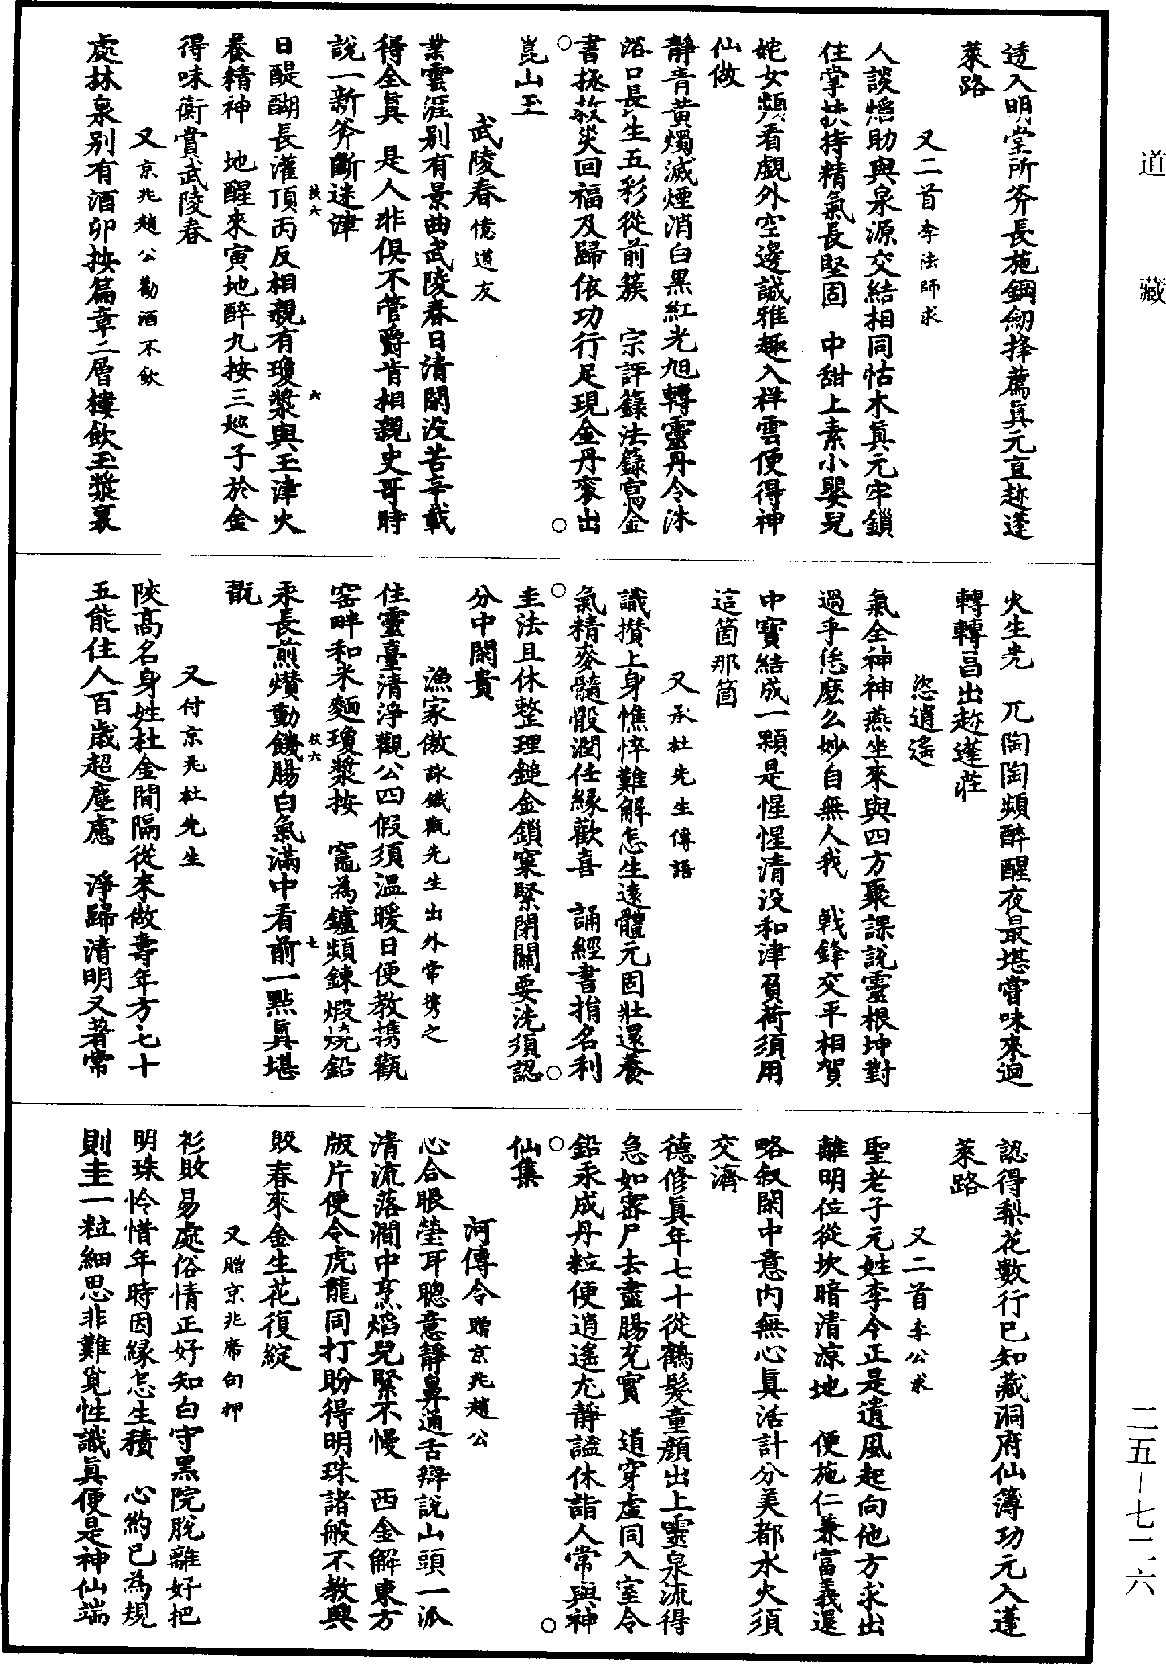 道藏
透入明堂所斧長施鋼劒擇薦眞元直趂蓬
萊路
又二首李法師求
人談熖助與泉源交結相同怙木眞元牢鎖
住掌扶持精氣長堅固　中甜上素小嬰兒
姹女頻看觑外空邊誠雅趣入祥雲便得神
仙做
靜青黃燭滅煙消白黑紅光旭轉靈丹令沐
浴口長生五彩從前簇　宗評籙法錄寫金
書拯救災回福及歸依功行足現金丹衮出
崑山玉
武陵春憶道友
業雲涯别有景曲武陵春日清閑没苦辛載
得全眞　是人非俱不管爵肯相親史哥時
說一新斧斷迷津
日醍醐長灌頂丙反相親有瓊漿與玉津火
養精神　地醒來寅地醉九按三㘽子於金
得味衡賞武陵春
又京兆趙公勸酒不飲
處林泉别有酒卯按篇章二層樓飲玉漿裏
火生光　兀陶陶頻醉醒夜最堪嘗味來迴
轉轉昌出趂蓬莊
恣逍遙
氣全神神燕坐來與四方聚課說靈根坤對
過乎恁麽么妙自無人我　戰鋒交平相賀
中寶結成一顆是惺惺清没和津負荷須用
這箇那箇
又承杜先生傳語
識攅上身憔悴難解怎生遠體元固壯還養
氣精麥髓骰潤仕緣歡喜　誦經書指名利
圭法且休整理鎚金鎖窠緊閉關要洗須認
分中閑貴
漁家傲詠鐵甎先生出外常擕之
住靈臺清淨觀公四假須温暖日便教携甎
窑畔和米麵瓊漿按　竈為鑪頻鍊煅燒鉛
汞長煎爁動饑腸白氣滿中看前一點眞堪
翫
又付京兆杜先生
陝高名身姓杜金間隔從來做壽年方七十
五能住人百歲超塵慮　淨歸清明又著常
認得梨花數行已知藏洞府仙簿功元入蓬
萊路
又二首李公求
聖老子元姓李今正是遺風起向他方求出
離明位從坎暗清凉地　便施仁兼富義還
略叙閑中意内無心眞活計分美都水火須
交濟
德修眞年七十從鶴髮童顏出上靈泉流得
急如審尸去盡腸充實　道穿虛同入室令
鉛汞成丹粒便逍遙尤靜謐休詣人常與神
仙集
河傳令贈京兆趙公
心合眼瑩耳聰意靜鼻通舌辯說山頭一派
清流落澗中烹熖兒緊不慢　西金解東方
版片便令虎龍同打盼得明珠諸般不教興
敗春來金生花復綻
又贈京兆席句押
衫敗易處俗情正好知白守黑院脫離好把
明珠怜惜年時因緣怎生積　心約已為規
則圭一粒細思非難覓性識眞便是神仙端
二五—七二六